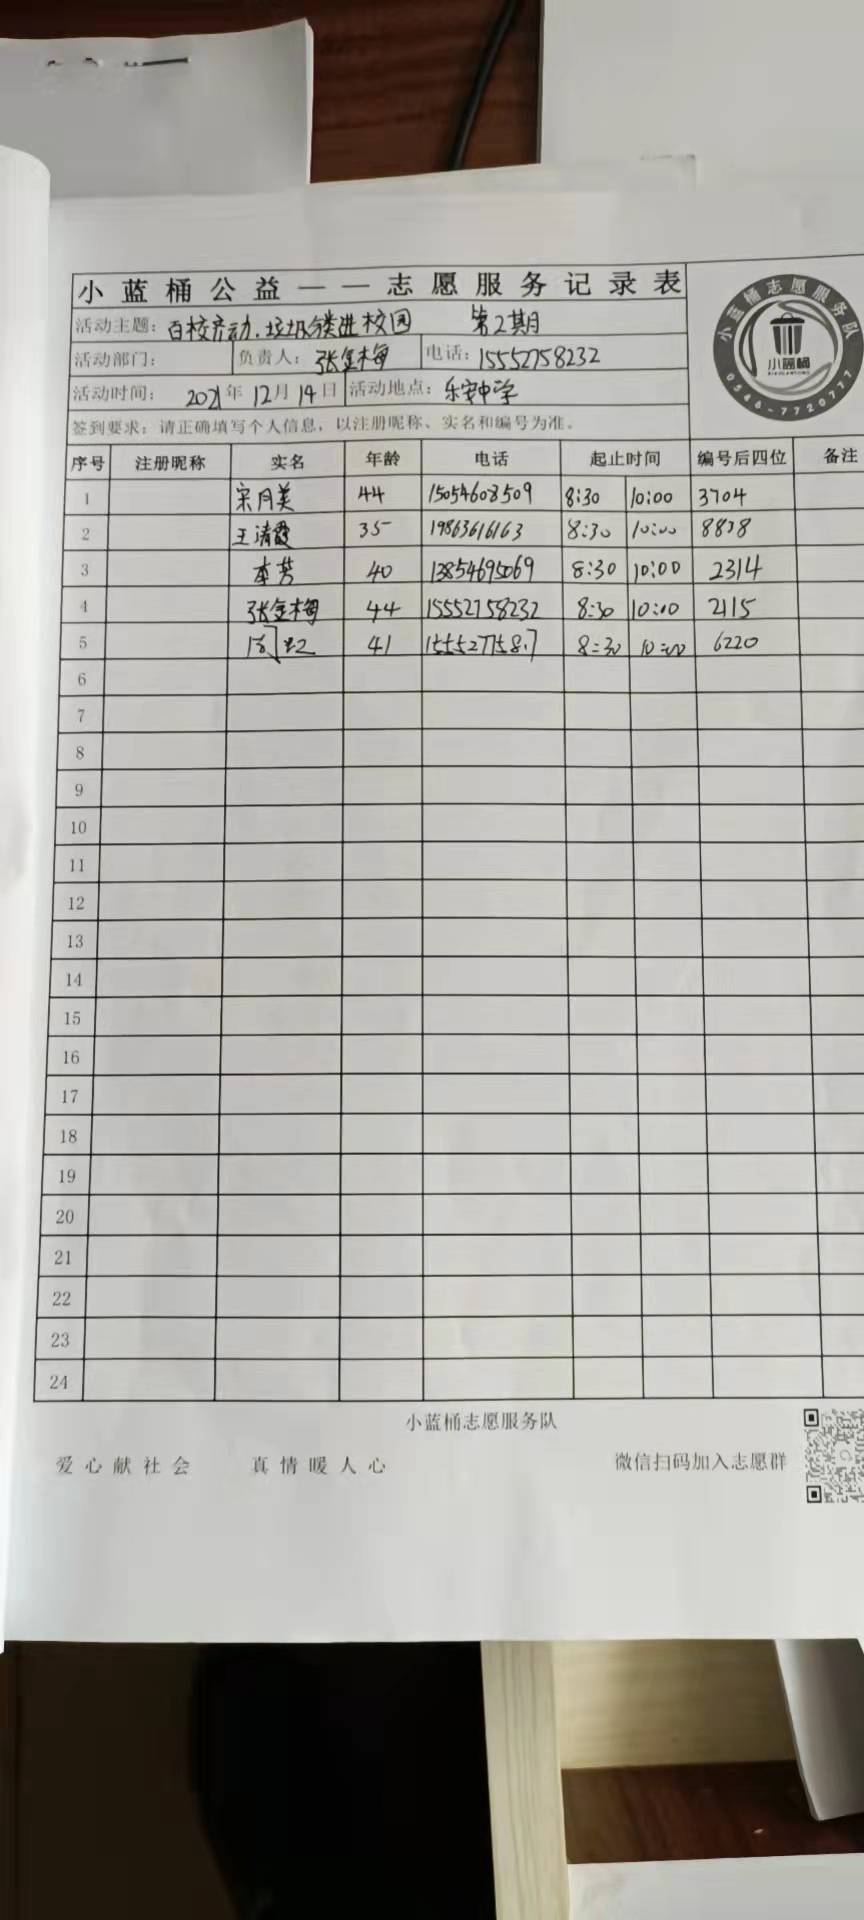 小蓝桶公益——志愿服务记录表
活动主题：百校齐动.垃圾分类进校园 第2期
活动部门： 负责人：张金梅 电话：15552758232
活动时间： 2021年12月14日 活动地点：乐安中学
签到要求：请正确填写个人信息，以注册昵称、实名和编号为准。
小蓝桶志愿服务队
小蓝桶
XIAOLANTONG
0546-7720777
序号 注册昵称 实名 年龄 电话 起止时间 编号后四位 备注
1 宋月美 44 15054608509 8:30 10:00 3704
2 王清霞 35 19863616163 8:30 10:00 8838
3 李芳 40 13854695069 8:30 10:00 2314
4 张金梅 44 15552758232 8:30 10:00 2115
5 41 8:30 10:00 6220
6
7
8
9
10
11
12
13
14
15
16
17
18
19
20
21
22
23
24
小蓝桶志愿服务队
爱心献社会 真情暖人心 微信扫码加入志愿群